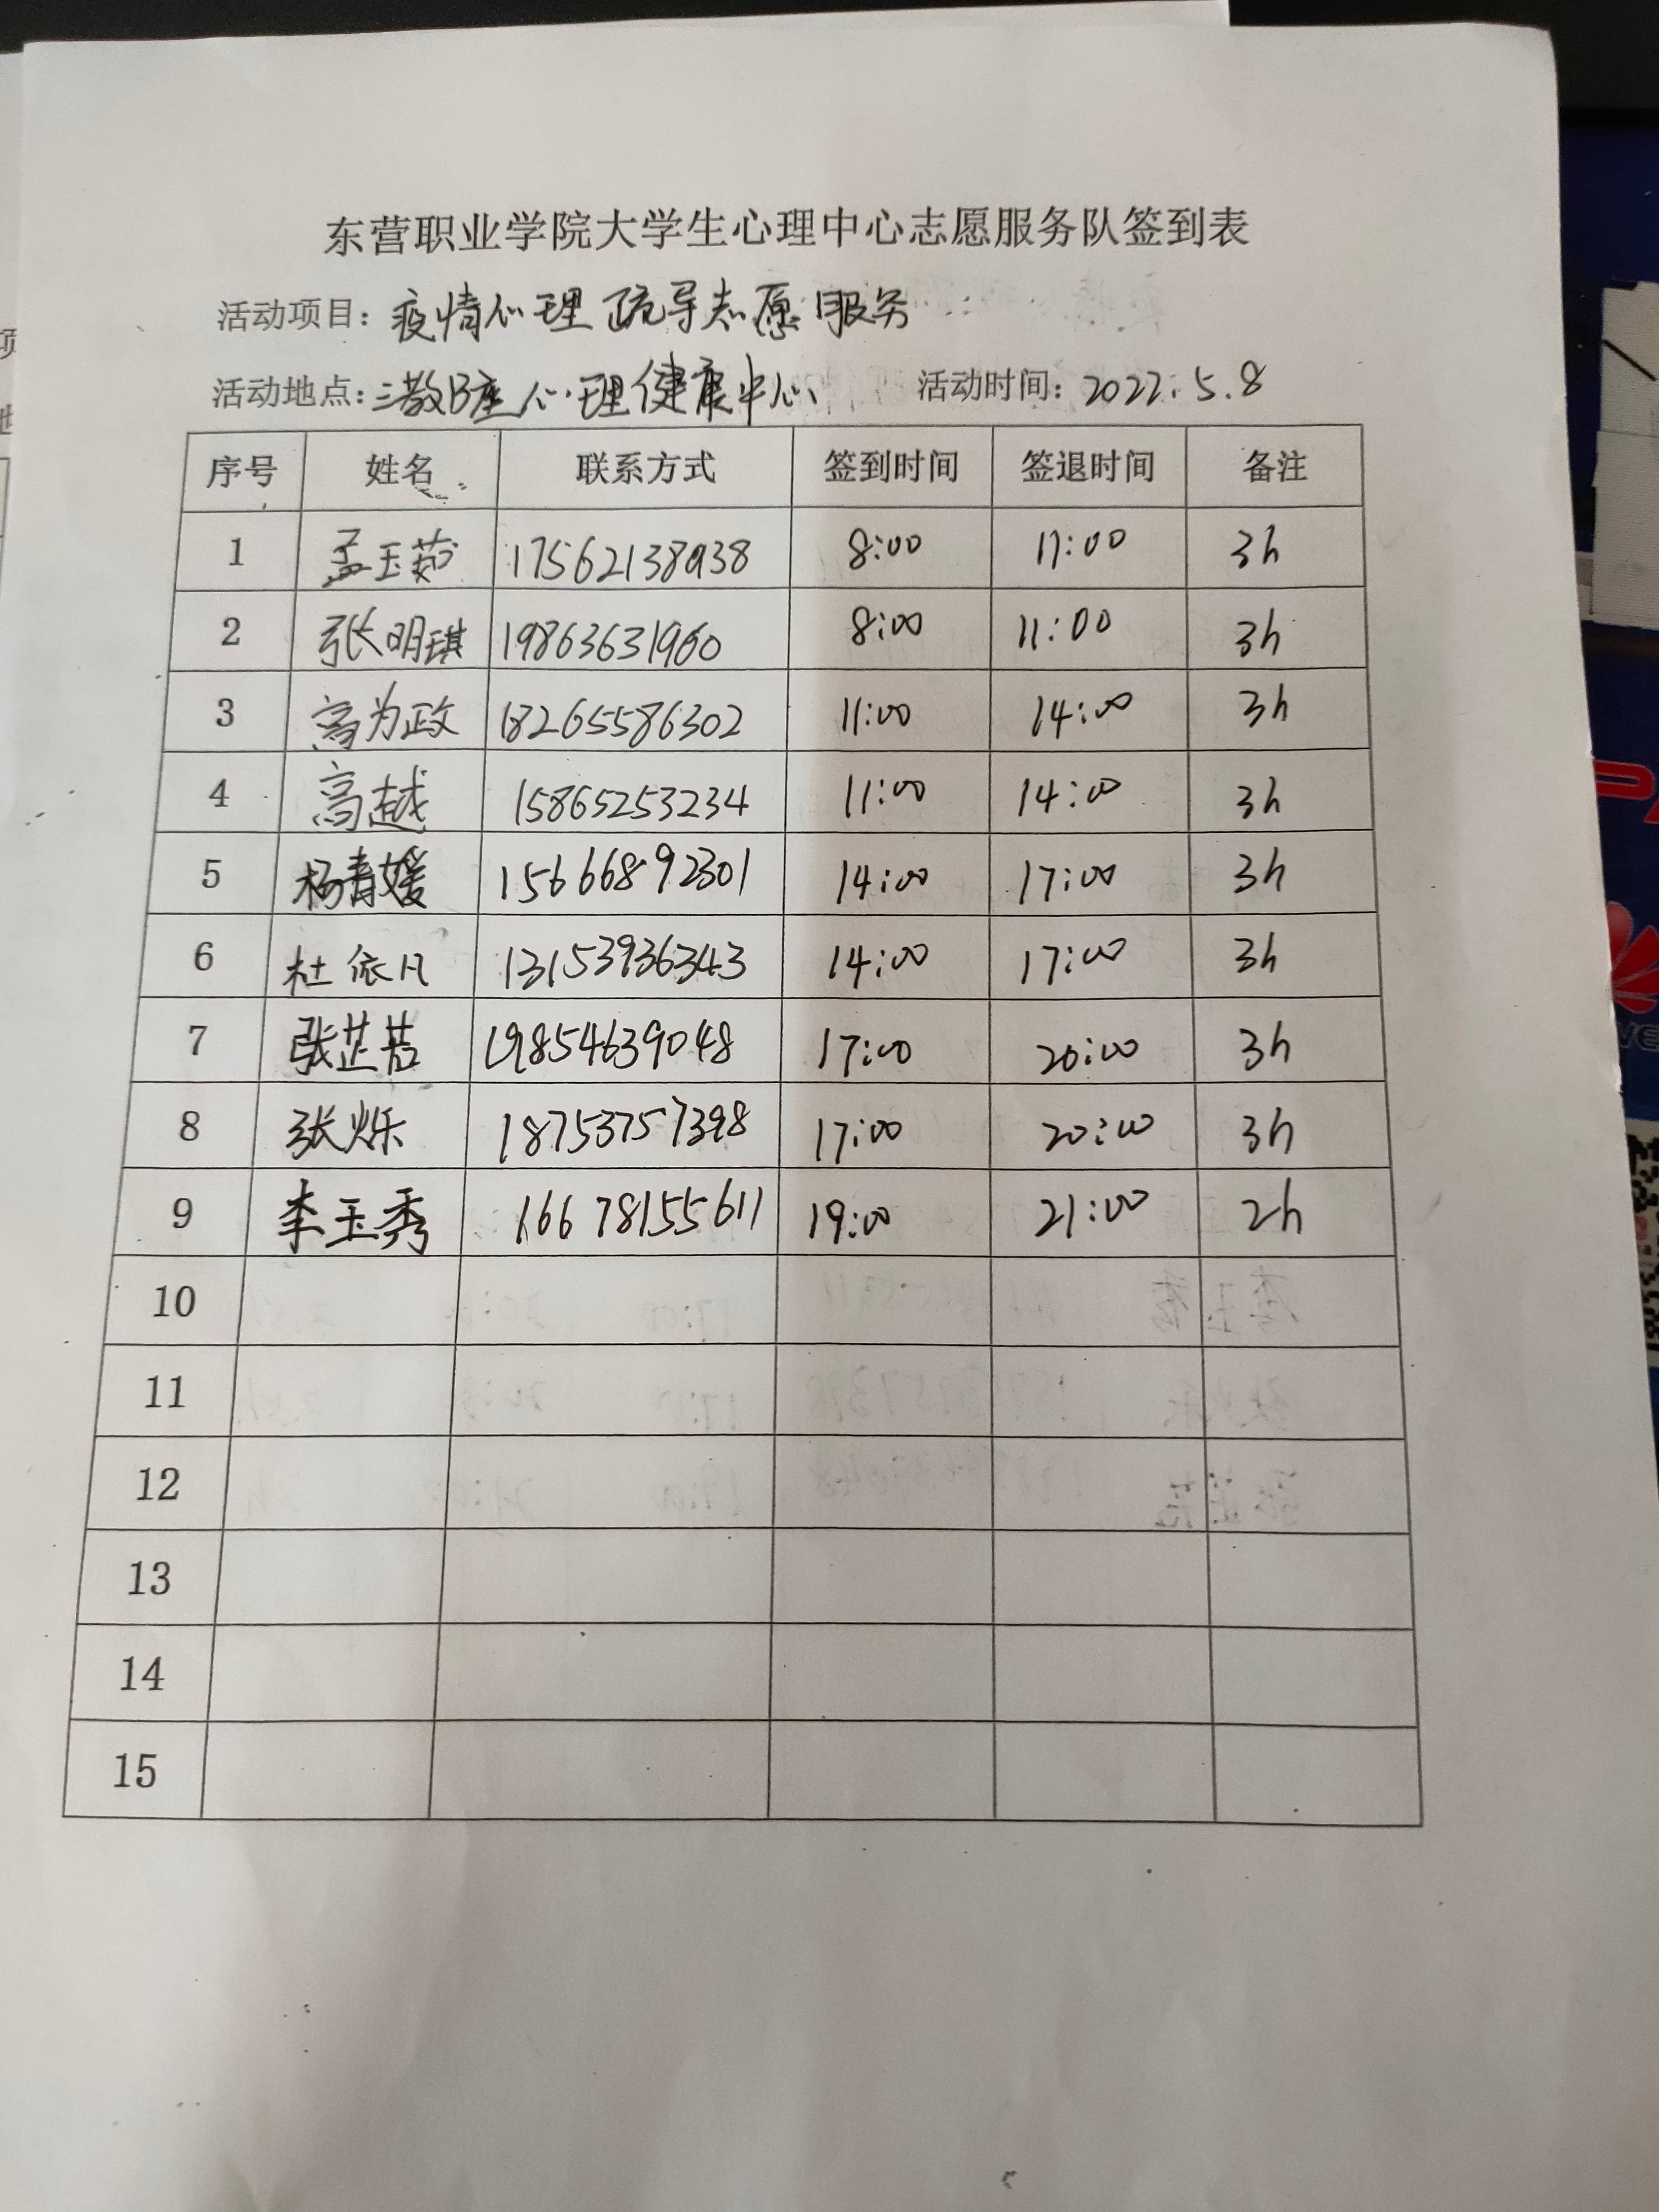 东营职业学院大学生心理中心志愿服务队签到表
活动项目：疫情心理疏导志愿服务
活动地点：三教B座心理健康中心 活动时间：2022.5.8
序号 姓名 联系方式 签到时间 签退时间 备注
1 孟玉茹 17562138938 8:00 11:00 3h
2 张明琪 19863631960 8:00 11:00 3h
3 高为政 18265586302 11:00 14:00 3h
4 高越 15865253234 11:00 14:00 3h
5 杨青媛 15666892301 14:00 17:00 3h
6 杜依凡 13153936343 14:00 17:00 3h
7 张芷若 19854639048 17:00 20:00 3h
8 张烁 18753757398 17:00 20:00 3h
9 李玉秀 16678155611 19:00 21:00 2h
10
11
12
13
14
15